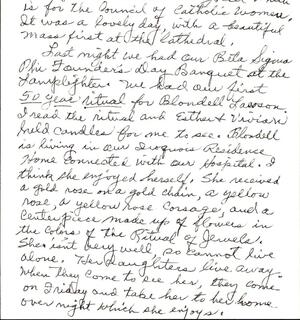 is for the Council of Catholic Women.
It was a lovely day, with a beautiful
mass first at the Cathedral.
Last night we had our Beta Sigma
Phi Founder's Day Banquet at the
Lamplighter. We had our first
50 Year Ritual for Blondell Lawson.
I read the ritual and Esther & Vivian
held candles for me to see. Blondell
is living in our Iroquois Residence
Home connected with our Hospital. I
think she enjoyed herself. She received
a gold rose on a gold chain, a yellow
rose, a yellow rose corsage, and a
centerpiece made up of flowers in
the colors of the Ritual of Jewels.
She isn't very well, so cannot live
alone. Her daughters live away.
When they come to see her, they come
on Friday and take her to her home
over night which she enjoys.